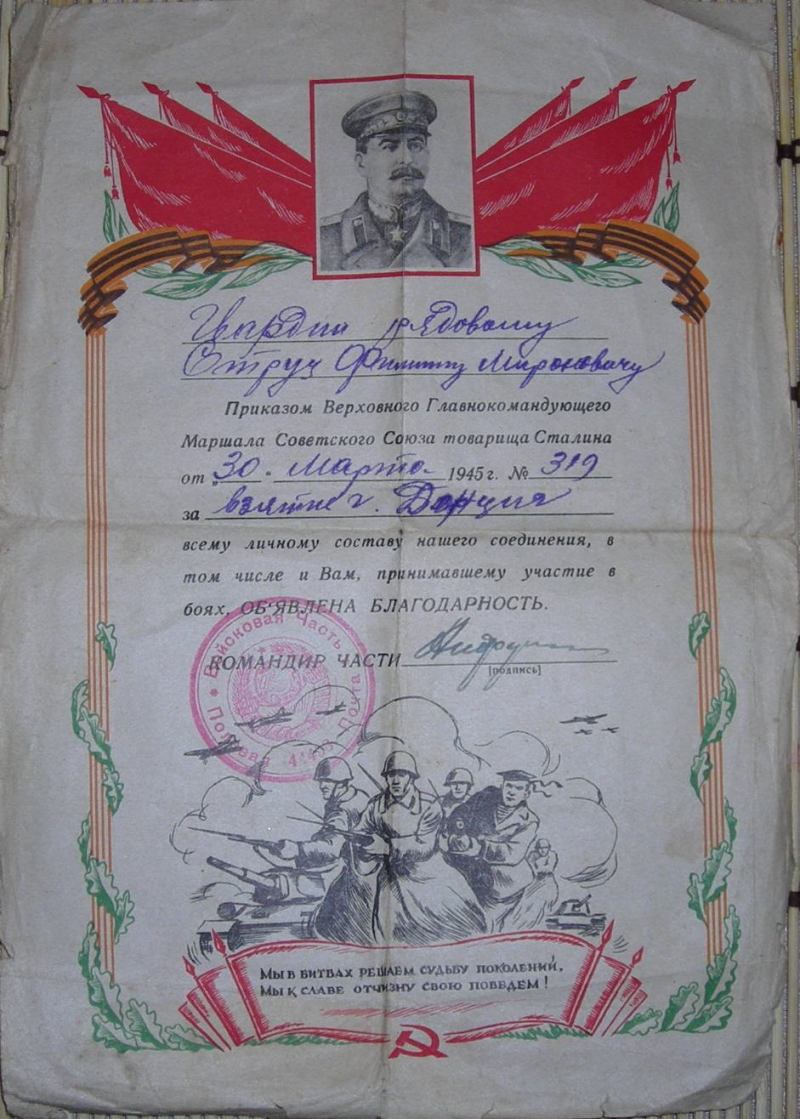 Гвардии рядовому
Струч Филиппу Мироновичу
Приказом Верховного Главнокомандующего
Маршала Советского Союза товарища Сталина
от „30“ Марта 1945 г. № 319
за взятие г. Данциг
всему личному составу нашего соединения, в
том числе и Вам, принимавшему участие в
боях, ОБ'ЯВЛЕНА БЛАГОДАРНОСТЬ.
КОМАНДИР ЧАСТИ
[подпись]
Войсковая Часть
Полевая Почта
МЫ В БИТВАХ РЕШАЕМ СУДЬБУ ПОКОЛЕНИЙ,
МЫ К СЛАВЕ ОТЧИЗНУ СВОЮ ПОВЕДЕМ!